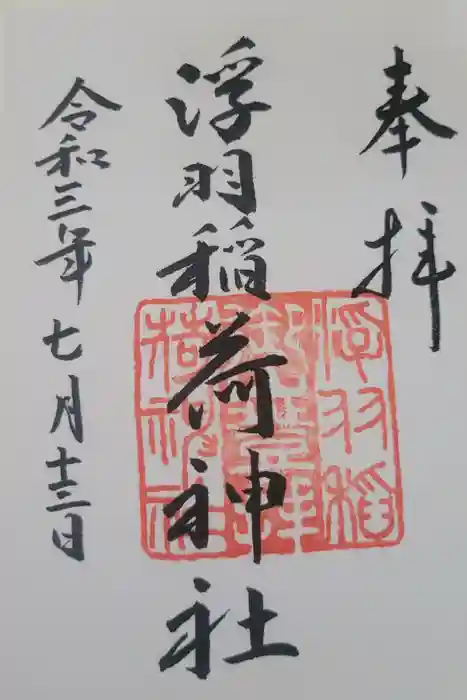 奉拝
浮羽稲荷神社
令和三年七月十三日
浮羽稲
荷神社